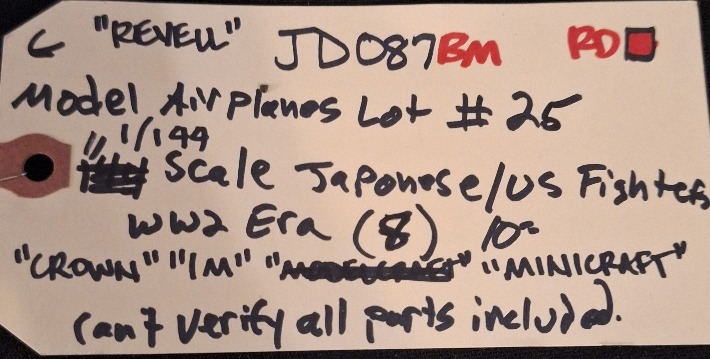 "REVELL" JD087BM RD
Model Airplanes Lot # 25
" 1/144
Scale Japonese/US Fighters
WW2 Era (8) 10-
"CROWN" "IM" "MINICRAFT"
can't verify all parts included.